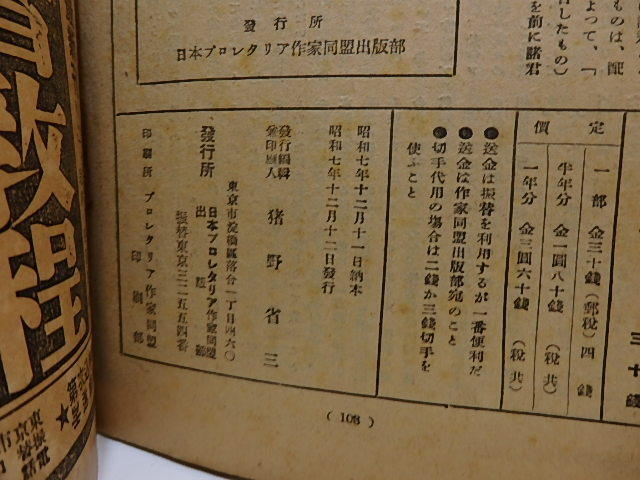 ものは、配
よって、「
したもの)
を前に諸君
發行所
日本プロレタリア作家同盟出版部
三十錢
定價
一部 金三十錢(郵税)四錢
半年分 金一圓八十錢(税共)
一年分 金三圓六十錢(税共)
●送金は振替を利用するが一番便利だ
●送金は作家同盟出版部宛のこと
●切手代用の場合は二錢か三錢切手を
使ふこと
昭和七年十二月十一日納本
昭和七年十二月十二日發行
發行編輯
兼印刷人 猪野省三
東京市淀橋區落合一丁目四六〇
發行所 日本プロレタリア作家同盟
出版部
振替東京三二五五四番
印刷所 プロレタリア作家同盟
印刷部
(103)
教程